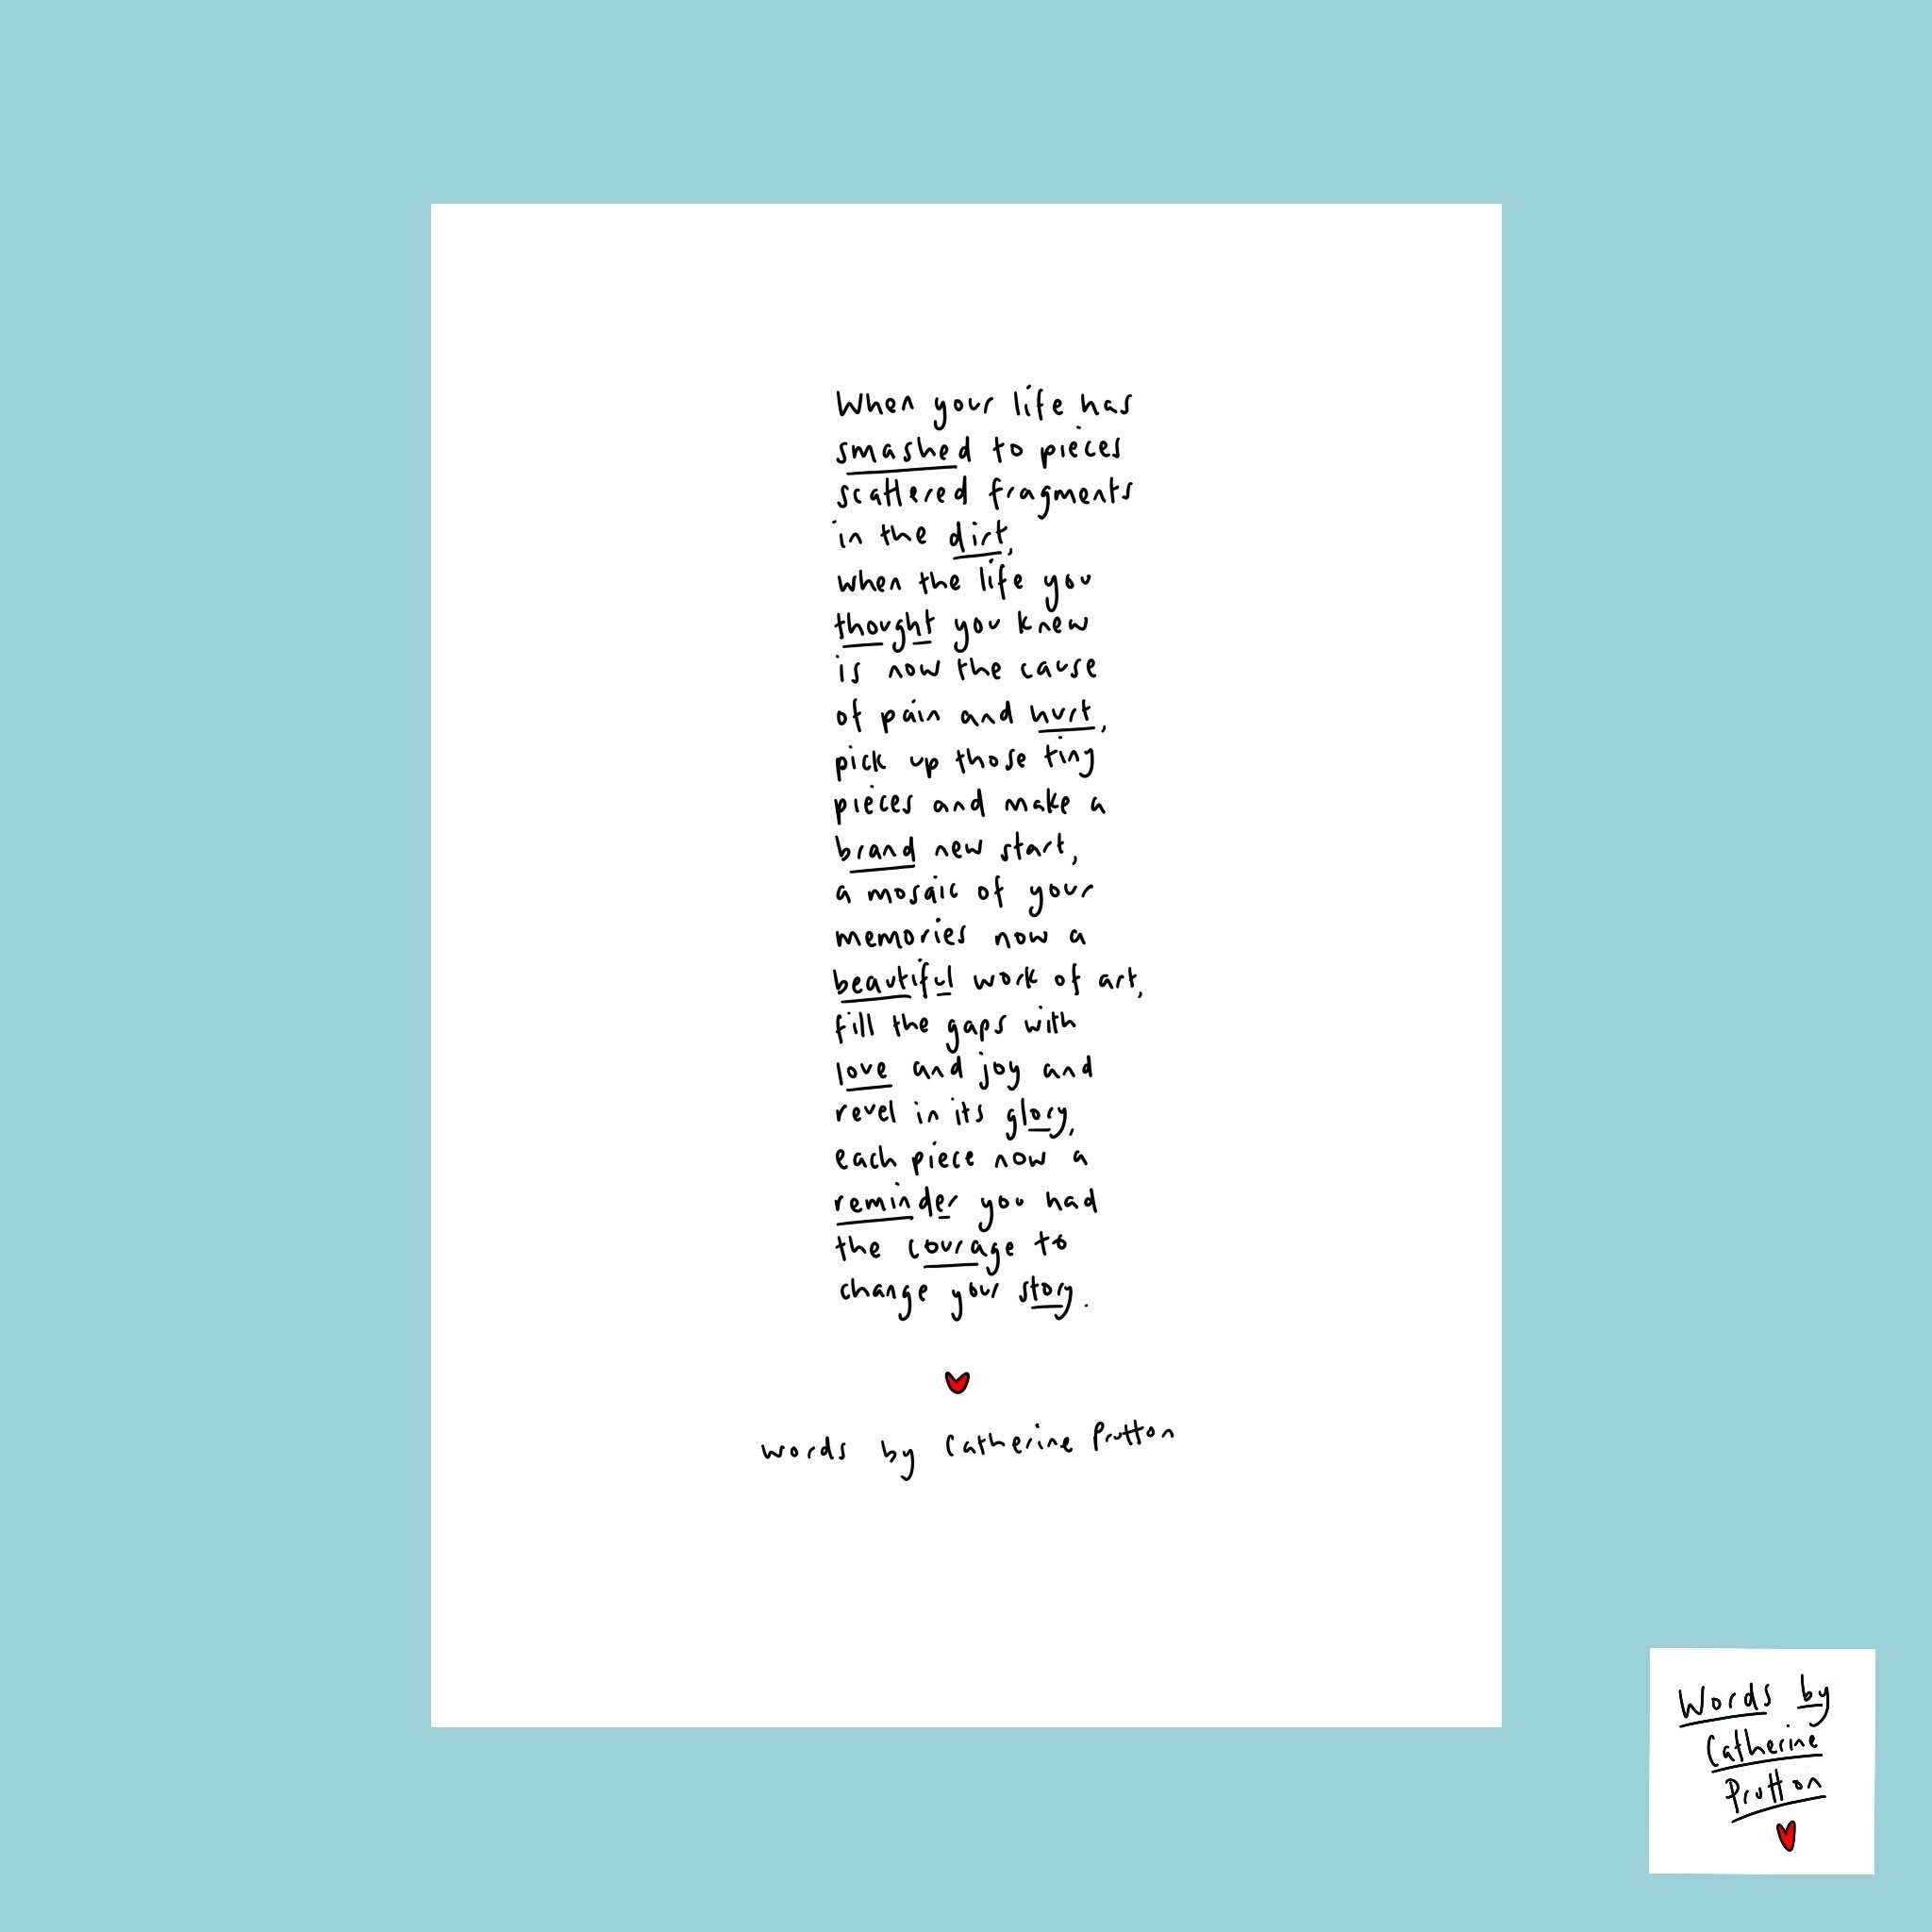 When your life has
smashed to pieces
scattered fragments
in the dirt,
when the life you
thought you knew
is now the cause
of pain and hurt,
pick up those tiny
pieces and make a
brand new start,
a mosaic of your
memories now a
beautiful work of art,
fill the gaps with
love and joy and
revel in its glory,
each piece now a
reminder you had
the courage to
change your story.
words by Catherine Prutton
Words by
Catherine
Prutton